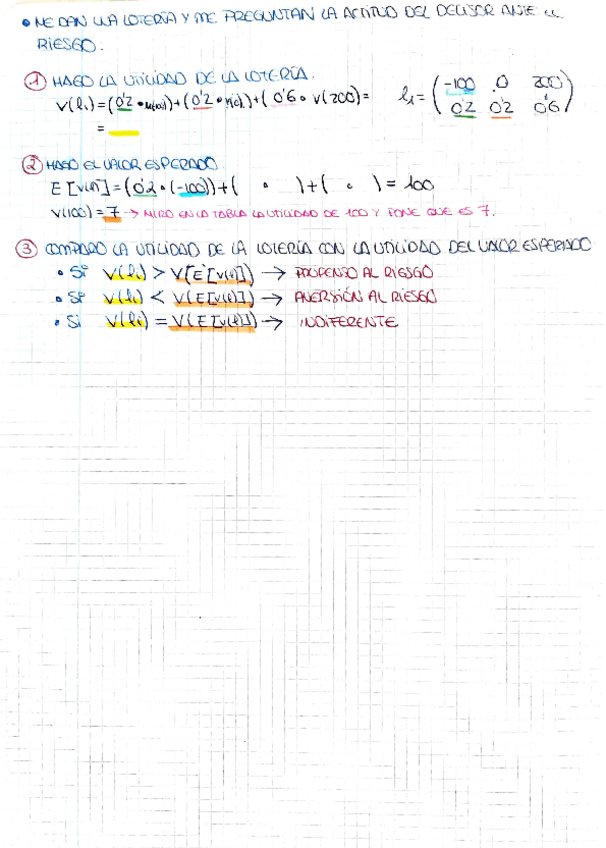 • ME DAN UNA LOTERÍA Y ME PREGUNTAN LA ACTITUD DEL DECISOR ANTE EL
RIESGO:
① HAGO LA UTILIDAD DE LA LOTERÍA.
V(l₁) = (0'2 • V(-100)) + (0'2 • V(0)) + (0'6 • V(200)) = l₁ = ( -100 0 200
= 0'2 0'2 0'6 )
② HAGO EL VALOR ESPERADO
E[V(l)] = (0'2 • (-100)) + ( • ) + ( • ) = 100
V(100) = 7 → MIRO EN LA TABLA LA UTILIDAD DE 100 Y PONE QUE ES 7.
③ COMPARO LA UTILIDAD DE LA LOTERÍA CON LA UTILIDAD DEL VALOR ESPERADO
• Si V(l₁) > V[E[V(l)]) → PROPENSO AL RIESGO
• Si V(l₁) < V(E[V(l)]) → AVERSIÓN AL RIESGO
• Si V(l₁) = V(E[V(l)]) → INDIFERENTE